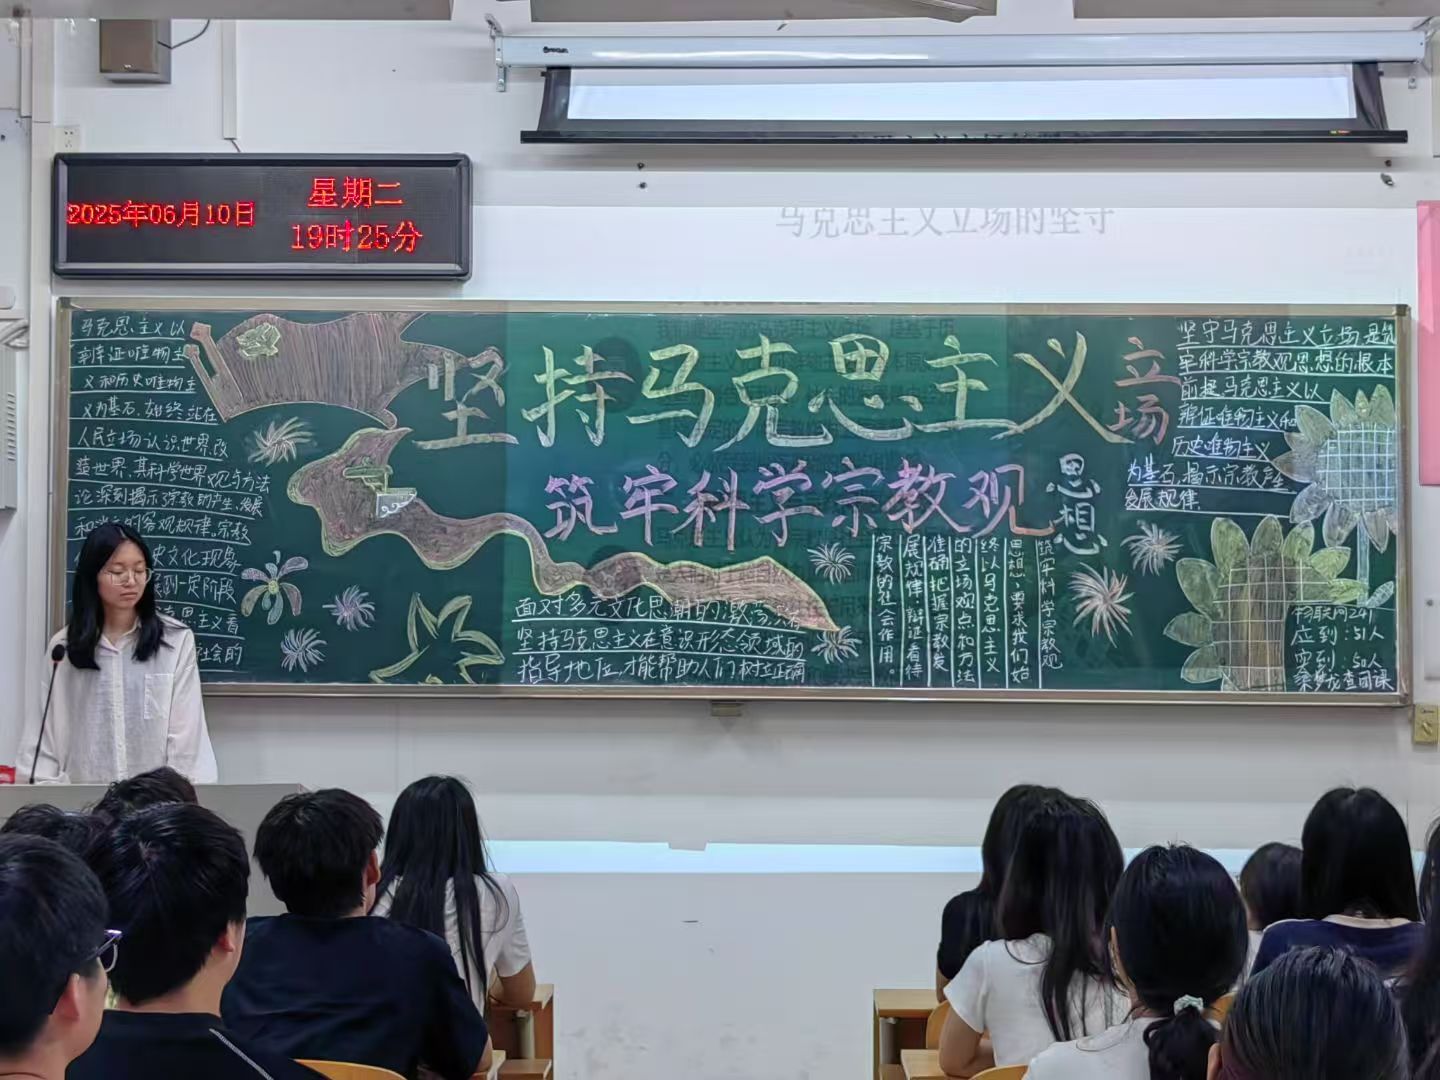 2025年06月10日
星期二
19时25分
马克思主义立场的坚守
坚持马克思主义立场
筑牢科学宗教观思想
马克思主义以
辩证唯物主
义和历史唯物主
义为基石,始终站在
人民立场认识世界、改
造世界,其科学世界观与方法
论深刻揭示宗教的产生、发展
的客观规律。宗教
史文化现象
到一定阶段
克思主义看
社会的
面对多元文化思潮的激荡
坚持马克思主义在意识形态领域的
指导地位,才能帮助人们树立正确
筑牢科学宗教观
思想,要求我们始
终以马克思主义
的立场观点和方法
准确把握宗教发
展规律,辩证看待
宗教的社会作用。
坚守马克思主义立场,是筑
牢科学宗教观思想的根本
前提,马克思主义以
辩证唯物主义和
历史唯物主义
为基石,揭示宗教产生
发展规律.
物联网241
应到:51人
实到:50人
查团课